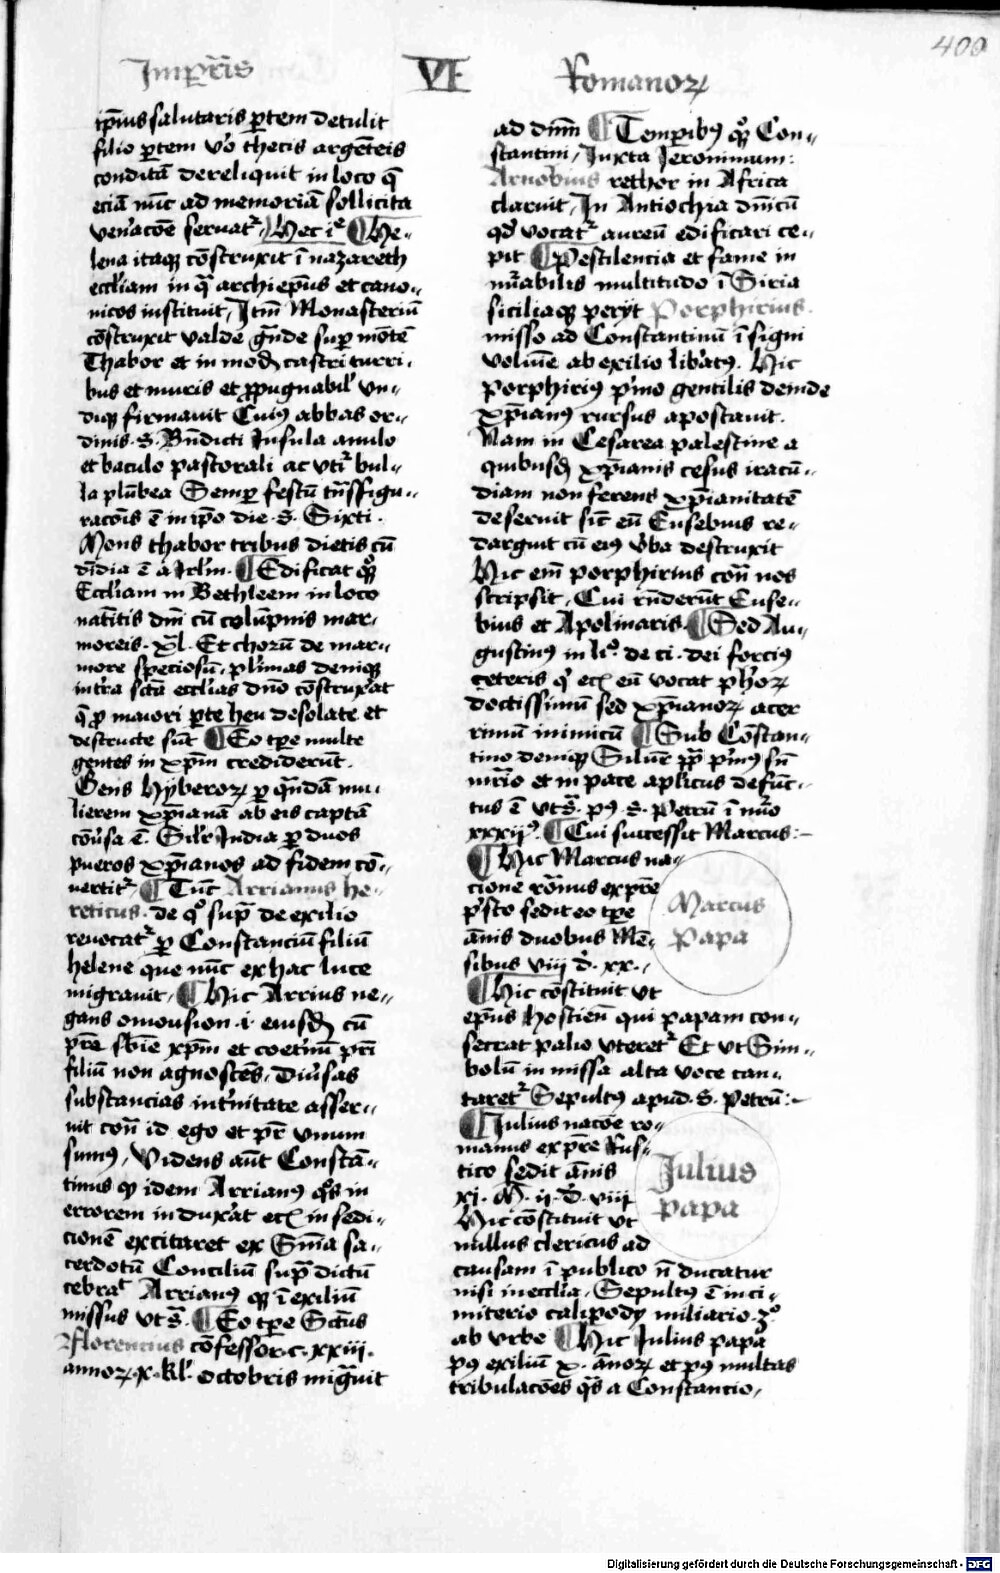 400
Imp̄r̄is VI Romanoꝝ
ip̄ius salutaris ꝑtem detulit
filio ꝑtem v̊o thecis argēteis
conditā dereliquit in loco q̄
eciā nūc ad memoriā sollicita
ven̄acōe seruat᷑ Hec i⁹ ¶ He-
lena itaqꝫ cōstruxit ī nazareth
eccl̄iam in q̄ archiep̄us et cano-
nicos instituit, Itm̄ Monasteriū
cōstruxit valde g̅nde suꝑ mōtē
Thabor et in modū castri turri-
bus et muris et ꝓpugnabil' vn-
diqꝫ firmauit Cuiꝰ abbas or-
dinis .S. Bn̄dicti Insula anulo
et baculo pastorali ac vtit᷑ bul-
la plūbea Semꝑ festū tn̄sfigu-
racōis ē in ip̄o die .S. Sixti.
Mons thabor tribus dietis cū
dīdia ē a Jrl̄m. ¶ Edificat qꝫ
Eccl̄iam in Bethleem in loco
natītis dn̄i cū colūpnis mar-
moreis .xl. Et chorū de mar-
more speciosū, pl'imas deniqꝫ
int̄ra sctā eccl'ias dn̄o cōstruxat
q̄ ꝓ maiori ꝑte heu desolate et
destructe sūt ¶ Eo tꝑe multe
gentes in xp̄m crediderūt.
Gens Hyberoꝝ ꝑ quādā mu-
lierem xp̄ianā ab eis captā
cōu'sa ē. Sil'r India ꝑ duos
pueros xp̄ianos ad fidem cō-
uertit᷑ ¶ Tūc Arrianus he-
reticus. de qº sup̄ de exilio
reuocat᷑ ꝑ Constanciū filiū
helene que nūc ex hac luce
migrauit, ¶ Hic Arrius ne-
gans omousion .i. eiusdē cū
pr̄e sbīe xp̄m et coet'nū pr̄i
filiū non agnoscēs, diu'sas
substancias in t'nitate asser-
uit con̄ id ego et pr̄ vnum
sumꝰ, Videns aūt Constā-
tinus qꝫ idem Arrianꝰ qºs in
errorem induxat ecc̄ in sedi-
cionē excitaret ex Sn̄ia sa-
cerdotū Conciliū sup̄dictū
cebrat᷑ Arrianꝰ qꝫ ī exiliū
missus vt s̄. ¶ Eo tꝑe Sctūs
Florencius cōfessor .c. xxiii.
annoꝝ .x. kl' octobris mig̅uit
ad dn̄m ¶ Temꝑibꝰ qꝫ Con-
stantini, Juxta Jeronimum:
Arnobius rethor in Africa
claruit, In Antiochia dn̄icū
qd' vocat᷑ aureū edificari ce-
pit ¶ Pestilencia et fame in
nūabilis multitudo ī Siria
siciliaqꝫ peryt Porphirius.
misso ad Constantinū ī signi
volum̄e ab exilio lib'atꝰ. Hic
Porphiriꝰ p'mo gentilis deinde
xp̄ianꝰ rursus apostauit.
Nam in Cesarea palestine a
quibusdā xp̄ianis cesus iracū-
diam non ferens xp̄ianitatē
deseruit sic̄ eū Eusebius re-
darguit cū eiꝰ v'ba destruxit
Hic em̄ porphirius con̄ nos
scripsit, Cui rn̄derūt Euse-
bius et Apolinaris. ¶ Sed Au-
gustinꝰ in liº de ci. dei forciꝰ
ceteris qº ecc̄ eū vocat ph'oꝝ
doctissimū sed xp̄ianoꝝ acer
rimū inimicū ¶ Sub Cōstan-
tino deniqꝫ Siluēr pp̄ p'mꝰ sn̄
mr̄io et in pace ap'licus defūc-
tus ē vt s̄. pꝰ .S. Petrū ī nūo
xxxiiº. ¶ Cui successit Marcus:-
¶ Hic Marcus na-
cione rōmus ex pr̄e
p'sto sedit eo tꝑe
ānis duobus Mē-
sibus viij d. xx.
¶ Hic cōstituit vt
ep̄us hostien̄ qui papam con-
secrat palio vteret᷑ Et vt Sim-
bolū in missa alta voce can-
taret᷑ Sepultꝰ apud .S. Petrū:-
Marcus
Papa
¶ Julius nacōe ro-
manus ex pr̄e Rus-
tico sedit ānis
xi. M. ii. d. viij
Hic cōstituit vt
nullus clericus ad
causam ī publico n̄ ducatur
nisi in eccl'ia, Sepultꝰ ē in ci-
miterio calipody miliario .3º.
ab vrbe ¶ Hic Julius papa
pꝰ exiliū x. ānoꝝ et pꝰ multas
tribulacōes qºs a Constancio,
Julius
papa
Digitalisierung gefördert durch die Deutsche Forschungsgemeinschaft - DFG